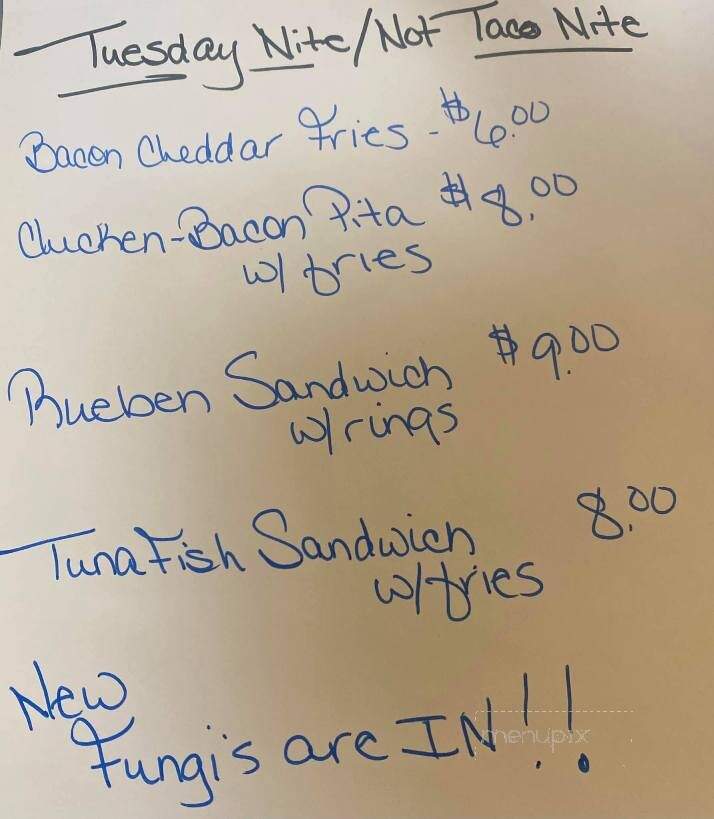 Tuesday Nite/Not Taco Nite
Bacon Cheddar Fries - $6.00
Chicken-Bacon Pita $8.00
w/ fries
Rueben Sandwich $9.00
w/rings
Tuna Fish Sandwich 8.00
w/fries
New
Fungi's are IN!!
menupix